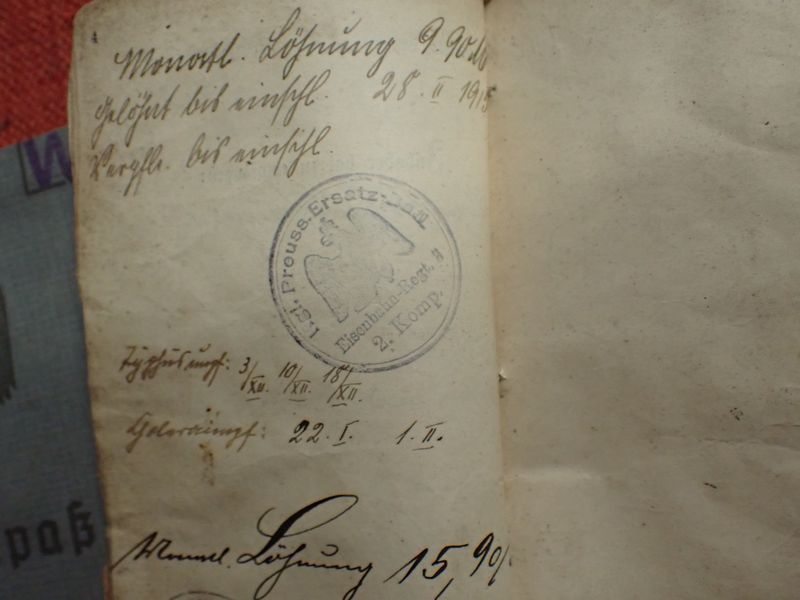 4
Monatl. Löhnung 9.90 M
Gelöhnt bis einschl. 28. II 1915
Verpfl. bis einschl.
Kgl. Preuss. Ersatz-Batl.
Eisenbahn-Regt.
2. Komp.
Typhusimpf: 3/XII. 10/XII. 18/XII.
Coleraimpf: 22. I. 1. II.
Monatl. Löhnung 15,90
paß